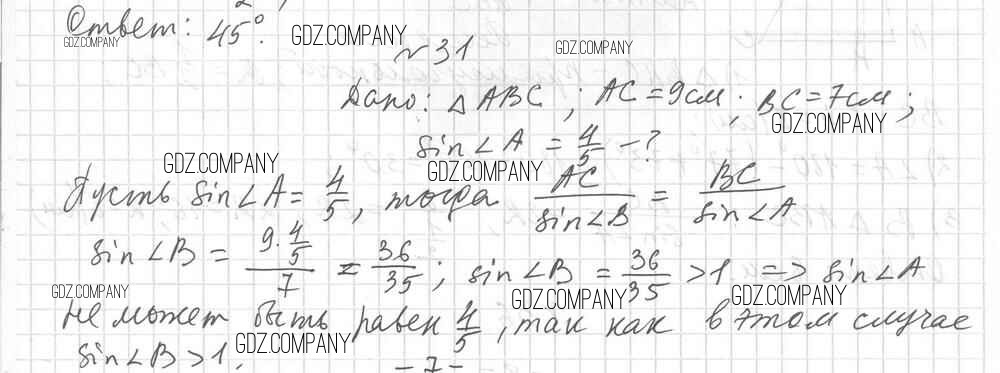 Ответ: 45°.
GDZ.COMPANY GDZ.COMPANY GDZ.COMPANY
№31
Дано: △ABC; AC = 9см; BC = 7см;
GDZ.COMPANY
sin∠A = 4/5 – ?
GDZ.COMPANY GDZ.COMPANY
Пусть sin∠A = 4/5, тогда AC/sin∠B = BC/sin∠A
sin∠B = (9·4/5)/7 = 36/35; sin∠B = 36/35 > 1 => sin∠A
GDZ.COMPANY GDZ.COMPANY GDZ.COMPANY
не может быть равен 4/5, так как в этом случае
GDZ.COMPANY
sin∠B > 1.
– 7 –